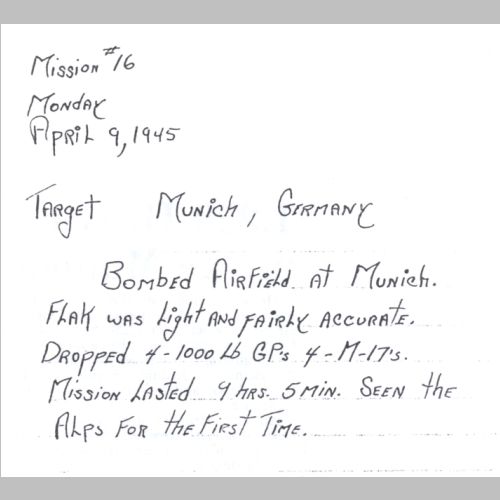 Mission #16
Monday
April 9, 1945
Target Munich, Germany
Bombed Airfield at Munich.
Flak was light and fairly accurate.
Dropped 4-1000 lb GPs 4-M-17's.
Mission lasted 9 hrs. 5 min. Seen the
Alps for the first time.